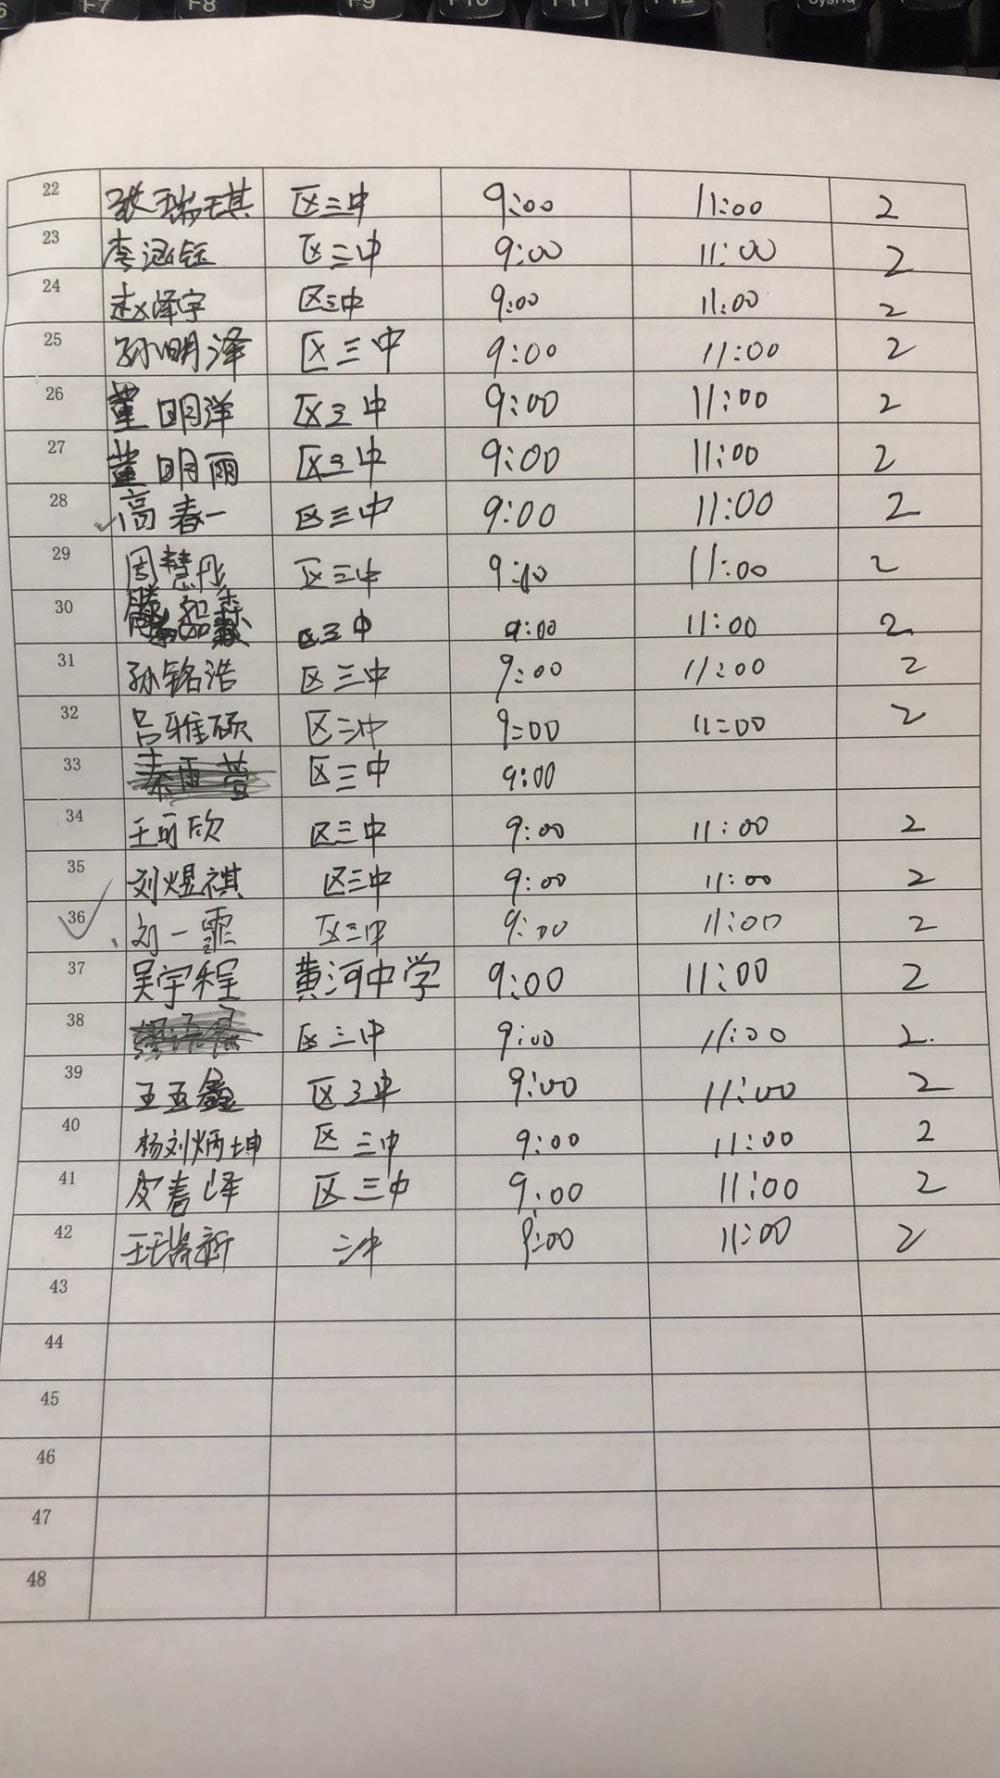 F7 F8 F9 F10 F11 F12
22 张瑞琪 区三中 9:00 11:00 2
23 李涵钰 区三中 9:00 11:00 2
24 赵泽宇 区三中 9:00 11:00 2
25 孙明泽 区三中 9:00 11:00 2
26 董明洋 区三中 9:00 11:00 2
27 董明雨 区三中 9:00 11:00 2
28 高春一 区三中 9:00 11:00 2
29 周慧彤 区三中 9:10 11:00 2
30 区三中 9:00 11:00 2
31 孙铭浩 区三中 9:00 11:00 2
32 吕雅硕 区三中 9:00 11:00 2
33 秦雨萱 区三中 9:00
34 王可欣 区三中 9:00 11:00 2
35 刘煜祺 区三中 9:00 11:00 2
36 刘一霏 区三中 9:00 11:00 2
37 吴宇程 黄河中学 9:00 11:00 2
38 区三中 9:00 11:00 2
39 王五鑫 区三中 9:00 11:00 2
40 杨刘炳坤 区三中 9:00 11:00 2
41 皮春泽 区三中 9:00 11:00 2
42 三中 9:00 11:00 2
43
44
45
46
47
48